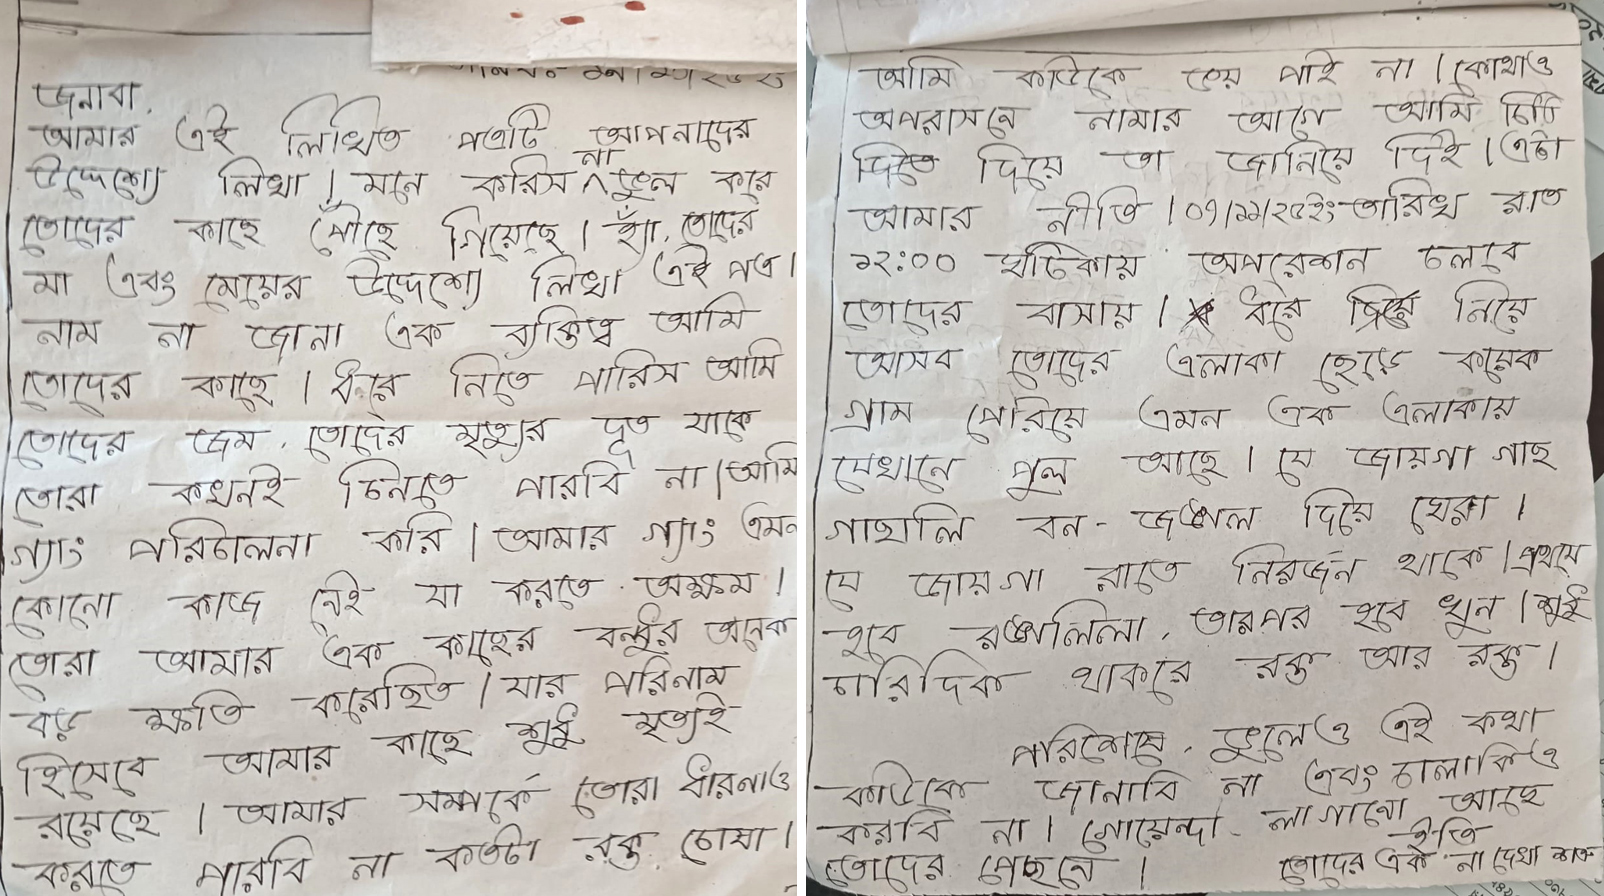 জনাবা,
আমার এই লিখিত পত্রটি আপনাদের
উদ্দেশ্যে লিখা। মনে করিস না ভুল করে
তোদের কাছে পৌঁছে গিয়েছে। হ্যাঁ, তোদের
মা এবং মেয়ের উদ্দেশ্যে লিখা এই পত্র।
নাম না জানা এক ব্যক্তিত্ব আমি
তোদের কাছে। ধরে নিতে পারিস আমি
তোদের জম, তোদের মৃত্যুর দূত যাকে
তোরা কখনই চিনতে পারবি না। আমি
গ্যাং পরিচালনা করি। আমার গ্যাং এমন
কোনো কাজ নেই যা করতে অক্ষম।
তোরা আমার এক কাছের বন্ধুর অনেক
বড় ক্ষতি করেছিত। যার পরিনাম
হিসেবে আমার কাছে শুধু মৃত্যুই
রয়েছে। আমার সম্পর্কে তোরা ধারনাও
করতে পারবি না কতটা রক্ত চোষা।
আমি কাউকে ভয় পাই না। কোথাও
অপরাসনে নামার আগে আমি চিঠি
দিতে দিয়ে তা জানিয়ে দিই। এটা
আমার নীতি। ০৭/১১/২০২ইং তারিখ রাত
১২:০০ ঘটিকায় অপরেশন চলবে
তোদের বাসায়। ধরে নিয়ে
আসব তোদের এলাকা ছেড়ে কয়েক
গ্রাম পেরিয়ে এমন এক এলাকায়
যেখানে পুল আছে। যে জায়গা গাছ
গাছালি বন-জঙ্গল দিয়ে ঘেরা।
যে জায়গা রাতে নিরর্জন থাকে। প্রথমে
হবে রঙ্গলিলা, তারপর হবে খুন। শুধু
চারিদিক থাকরে রক্ত আর রক্ত।
পরিশেষে, ভুলেও এই কথা
কাউকে জানাবি না এবং চালাকিও
করবি না। গোয়েন্দা লাগানো আছে
তোদের পেছনে।
ইতি
তোদের এক না দেখা শত্রু